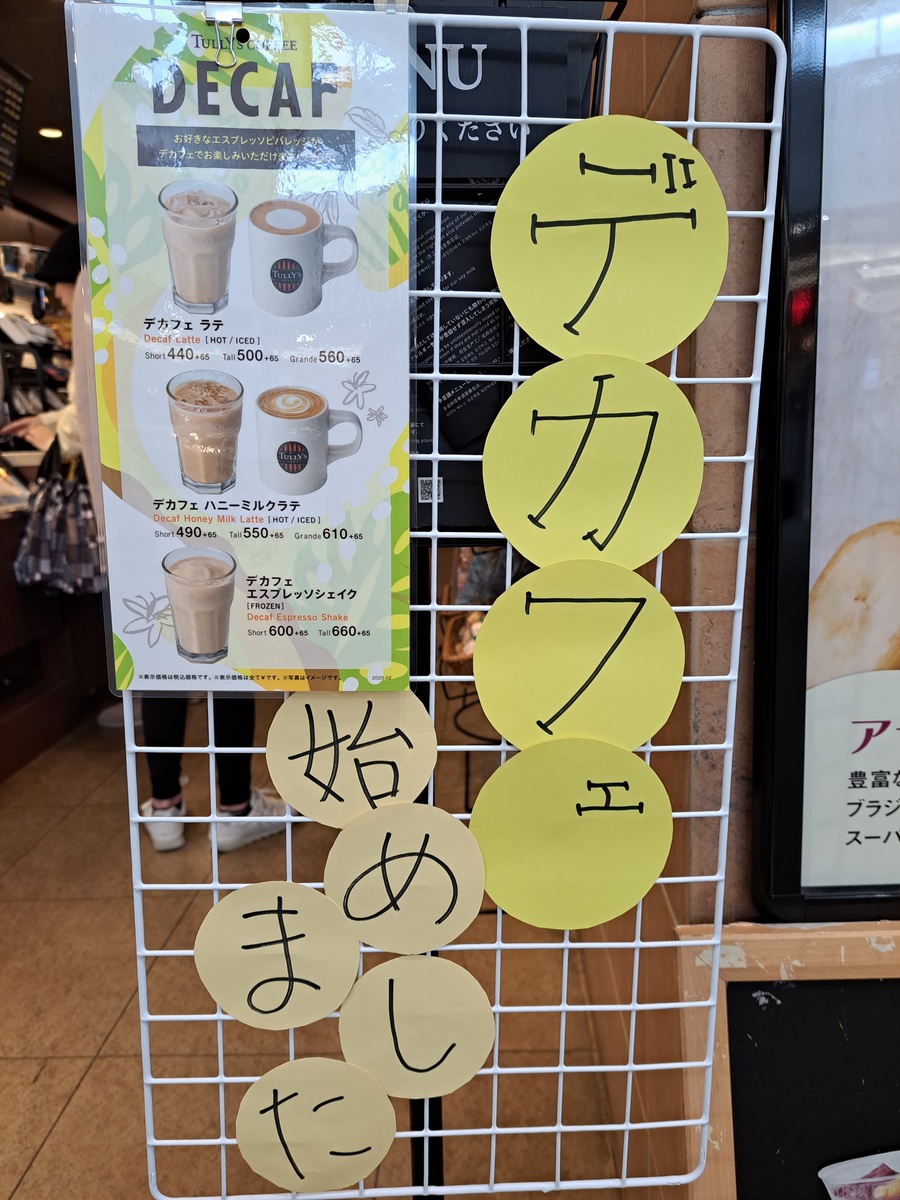 TULLY'S COFFEE
DECAF
お好きなエスプレッソビバレッジが
デカフェでお楽しみいただけま
デカフェ ラテ
Decaf Latte [HOT / ICED]
Short 440+65 Tall 500+65 Grande 560+65
デカフェ ハニーミルクラテ
Decaf Honey Milk Latte [HOT / ICED]
Short 490+65 Tall 550+65 Grande 610+65
デカフェ
エスプレッソシェイク
[FROZEN]
Decaf Espresso Shake
Short 600+65 Tall 660+65
※表示価格は税込価格です。※表示価格は全て¥です。※写真はイメージです。
2025.02
TULLY'S
TULLY'S
NU
ください
デカフェ
始めました
豊富な
ブラジ
スーパ